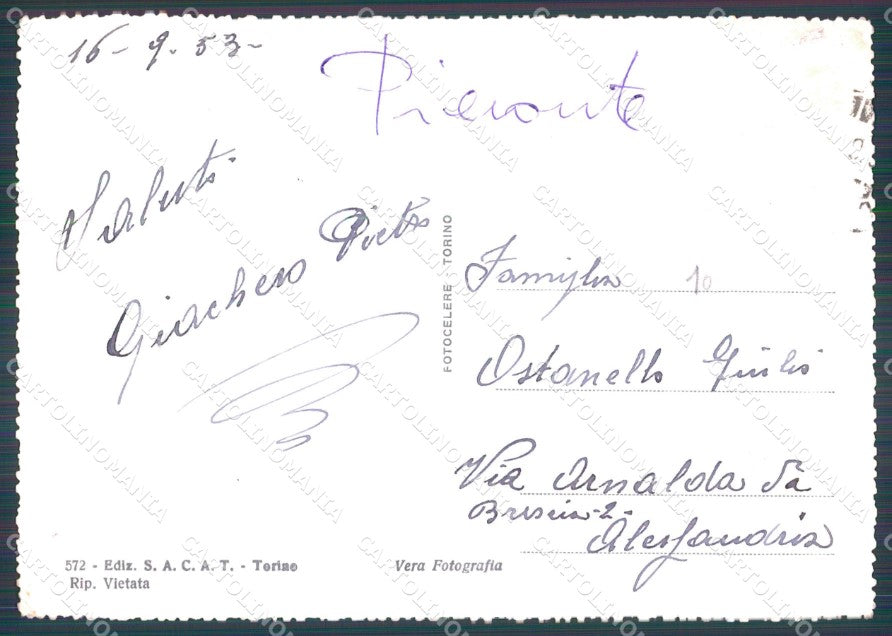 16-9.53-
Piemonte
Saluti
Giachero Pietro
FOTOCELERE TORINO
Famiglia 10
Ostanello Giulio
Via Arnalda da
Brescia-2-
Alessandria
572 - Ediz. S. A. C. A. T. - Torino
Rip. Vietata
Vera Fotografia
CARTOLINOMANIA